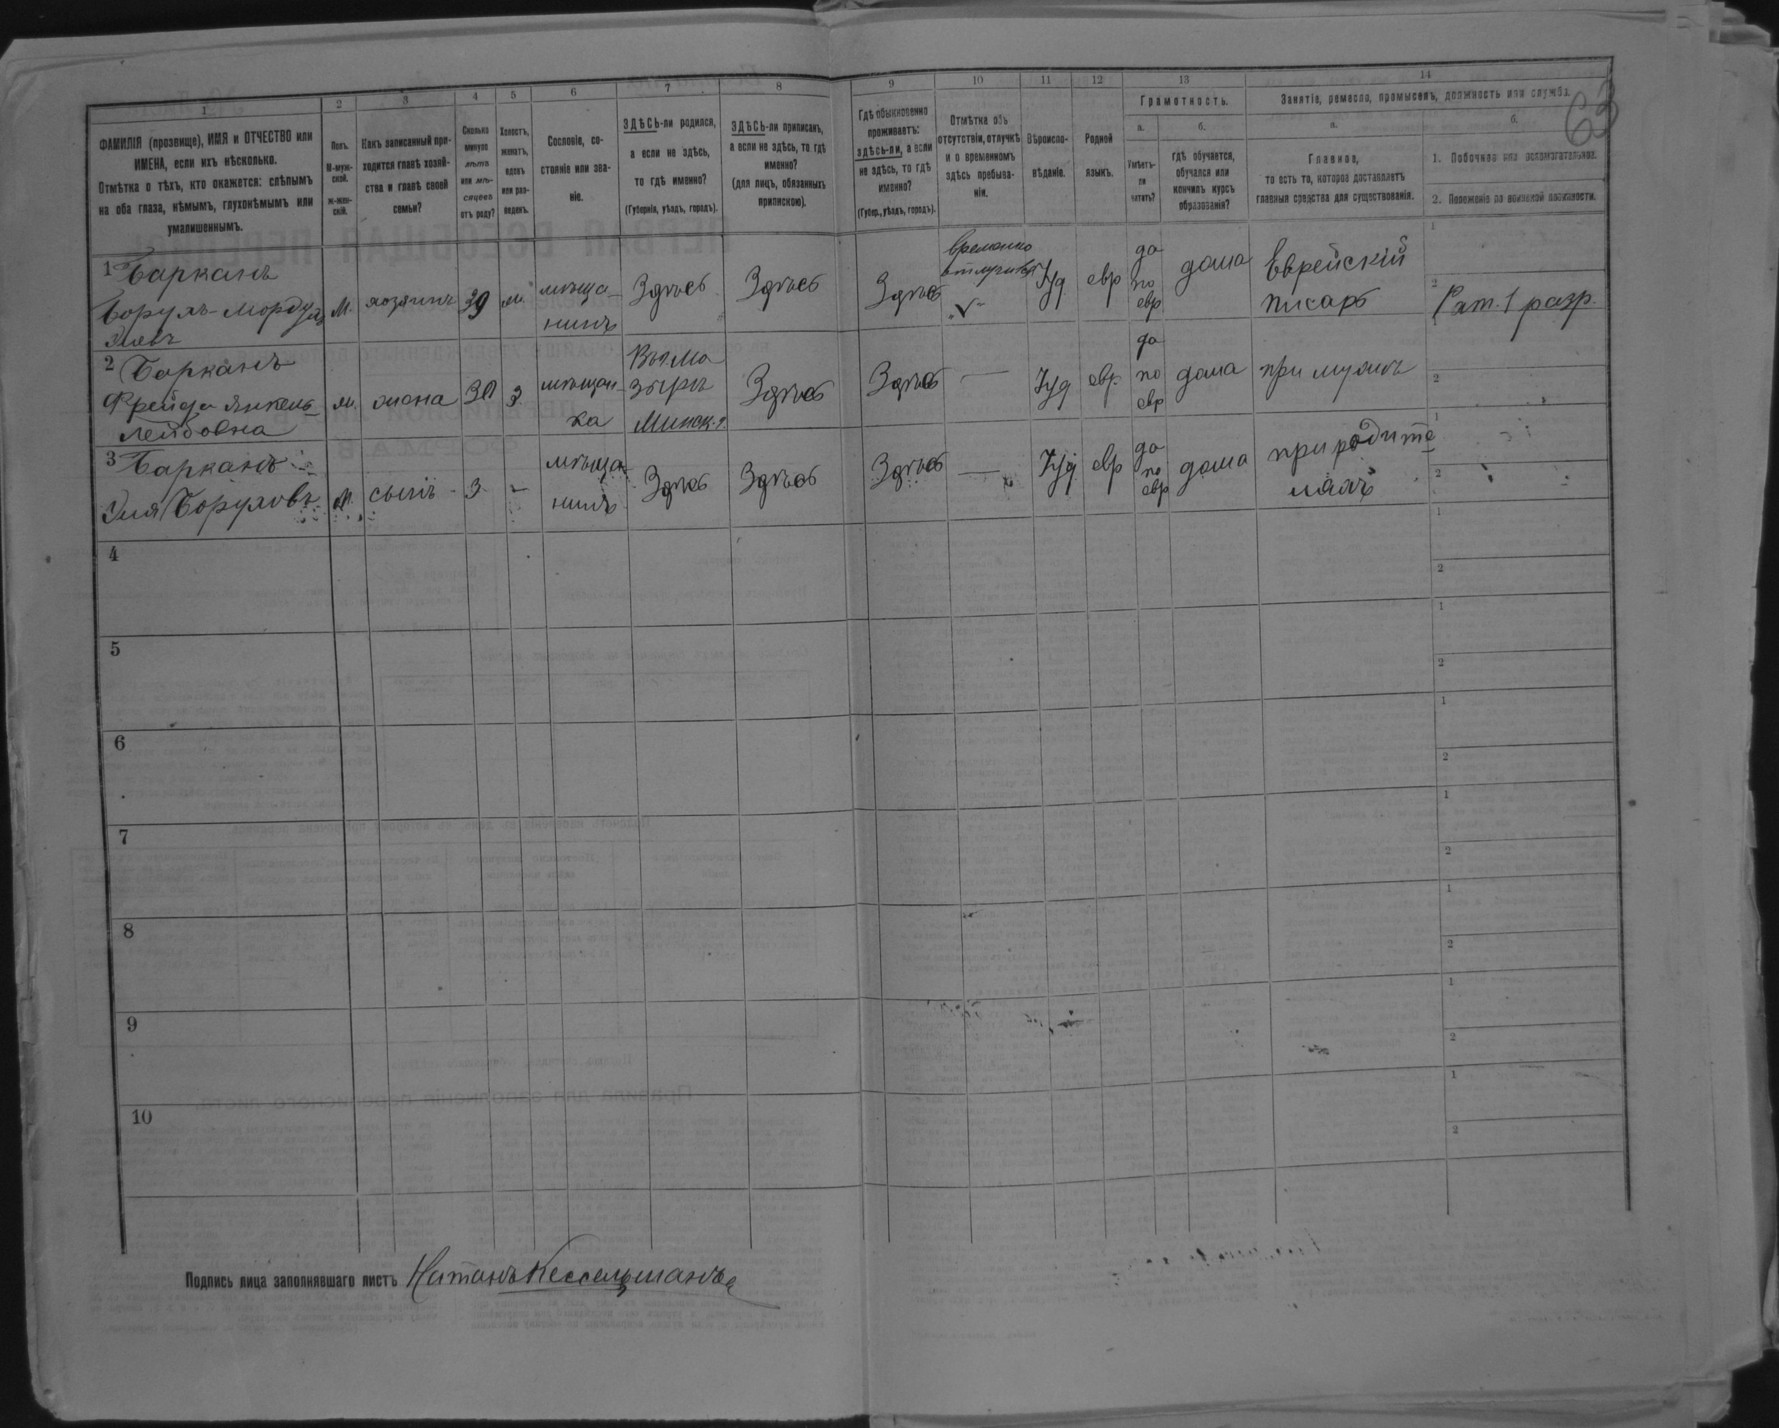 1
2
3
4
5
6
7
8
9
10
11
12
13
14
63
ФАМИЛІЯ (прозвище), ИМЯ и ОТЧЕСТВО или
ИМЕНА, если ихъ нѣсколько.
Отмѣтка о тѣхъ, кто окажется: слѣпымъ
на оба глаза, нѣмымъ, глухонѣмымъ или
умалишеннымъ.
Полъ.
М-муж-
ской.
Ж-жен-
скій.
Какъ записанный при-
ходится главѣ хозяй-
ства и главѣ своей
семьи?
Сколько
минуло
лѣтъ
или мѣ-
сяцевъ
отъ роду?
Холостъ,
женатъ,
вдовъ
или раз-
веденъ.
Сословіе, со-
стояніе или зва-
ніе.
ЗДѢСЬ-ли родился,
а если не здѣсь,
то гдѣ именно?
(Губернія, уѣздъ, городъ).
ЗДѢСЬ-ли приписанъ,
а если не здѣсь, то гдѣ
именно?
(для лицъ, обязанныхъ
припискою).
Гдѣ обыкновенно
проживаетъ:
здѣсь-ли, а если
не здѣсь, то гдѣ
именно?
(Губер., уѣздъ, городъ).
Отмѣтка объ
отсутствіи, отлучкѣ
и о временномъ
здѣсь пребыва-
ніи.
Вѣроиспо-
вѣданіе.
Родной
языкъ.
Грамотность.
а.
Умѣетъ-
ли
читать?
б.
гдѣ обучается,
обучался или
кончилъ курсъ
образованія?
Занятіе, ремесло, промыселъ, должность или служба.
а.
Главное,
то есть то, которое доставляетъ
главныя средства для существованія.
б.
1. Побочное или вспомогательное.
2. Положеніе по воинской повинности.
1 Барканъ
Борухъ-Мордух
М.
хозяинъ
39
мѣща-
нинъ
Здѣсь
Здѣсь
Здѣсь
временно
Іуд
евр
да
по
евр
дома
Еврейскій
писарь
1
2
Рат. 1 разр.
2 Барканъ
Фрейда Янкель-
Лейбовна
м.
жена
30
з
мѣщан-
ка
Здѣсь
Здѣсь
—
Іуд
евр.
да
по
евр
дома
при мужѣ
1
2
3 Барканъ
М
сынъ
3
-
мѣщан
нинъ
Здѣсь
Здѣсь
Здѣсь
—
Іуд
евр
да
по
евр
дома
при родите
ляхъ
1
2
4
1
2
5
1
2
6
1
2
7
1
2
8
1
2
9
1
2
10
1
2
Подпись лица заполнявшаго листъ Натанъ Кессельманъ